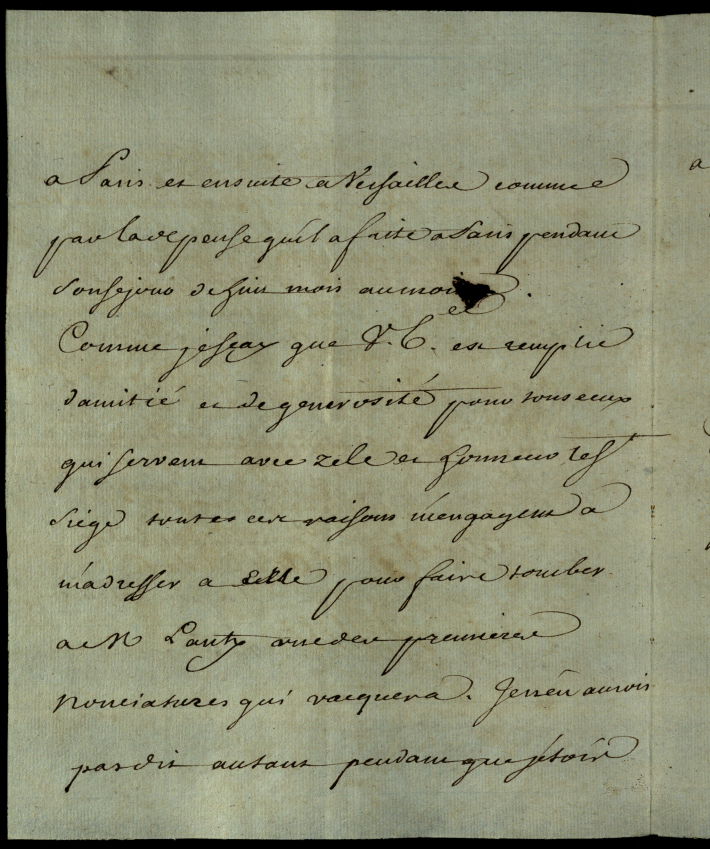 a Paris et ensuite a Versailles comme
par la depense qu'il a faitte a Paris pendant
son sejour de huit mois au moins.
Comme je scay que V. E.ce est remplie
d'amitié et de generosité pour tous ceux
qui servent avec zele et honneur le St
siége toutes ces raisons m'engagent a
m'adresser a Elle pour faire tomber
a M Lanty une des premieres
nonciatures qui vacquera. Je n'en aurois
pas dit autant pendant que j'étois
a